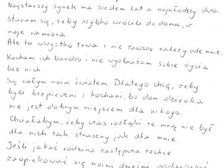 Najstarszy synek ma siedem lat a najmłodszy dwa
Staram się, żeby szybko wrócili do domu, w
moje ramiona.
Ale to wszystko trwa i nie zawsze zależy ode mnie.
Kocham ich bardzo i nie wyobrażam sobie życia
bez nich.
Są całym moim światem. Dlatego chcę, żeby
byli bezpieczni i kochani, bo dom dziecka
nie jest dobrym miejscem dla nikogo.
Chciałabym, żeby czas rozłąki ze mną nie był
dla nich tak straszny jak dla mnie
Jeśli jakaś rodzina zastępcza zechce
zaopiekować się moimi dziećmi